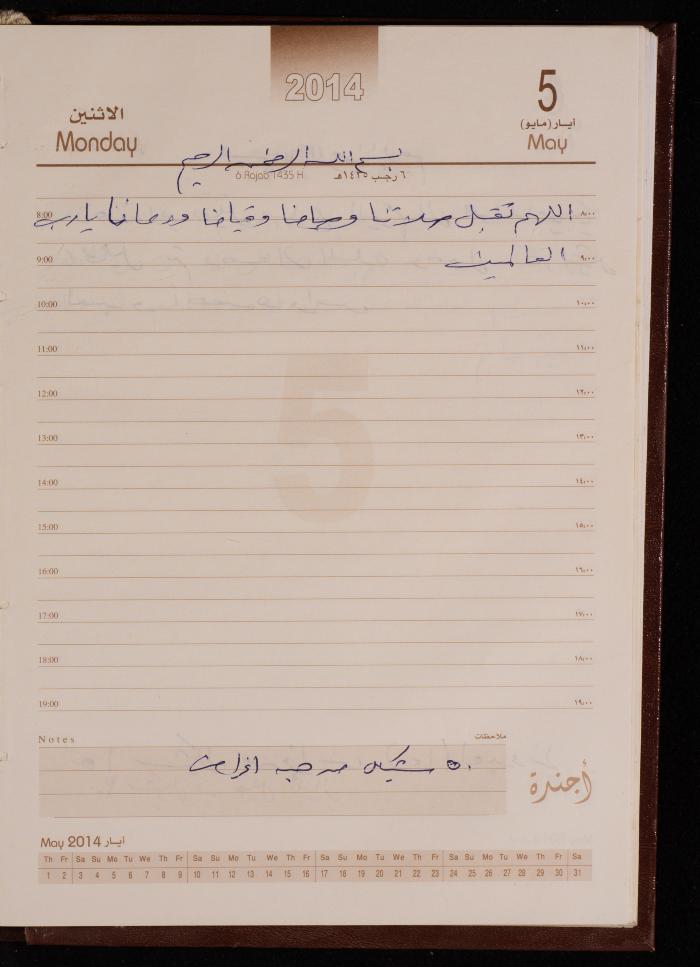 2014
5
الاثنين
Monday
أيار (مايو)
May
بسم الله الرحمن الرحيم
6 Rajab 1435 H
٦ رجب ١٤٣٥هـ
8:00 اللهم تقبل صلاتنا وصيامنا وقيامنا ودعائنا يا رب ٨:٠٠
9:00 العالمين ٩:٠٠
10:00 ١٠:٠٠
11:00 ١١:٠٠
12:00 ١٢:٠٠
5
13:00 ١٣:٠٠
14:00 ١٤:٠٠
15:00 ١٥:٠٠
16:00 ١٦:٠٠
17:00 ١٧:٠٠
18:00 ١٨:٠٠
19:00 ١٩:٠٠
Notes ملاحظات
٥٠ شيكل من حبه
أجندة
May 2014 أيار
Th Fr Sa Su Mo Tu We Th Fr Sa Su Mo Tu We Th Fr Sa Su Mo Tu We Th Fr Sa Su Mo Tu We Th Fr Sa
1 2 3 4 5 6 7 8 9 10 11 12 13 14 15 16 17 18 19 20 21 22 23 24 25 26 27 28 29 30 31